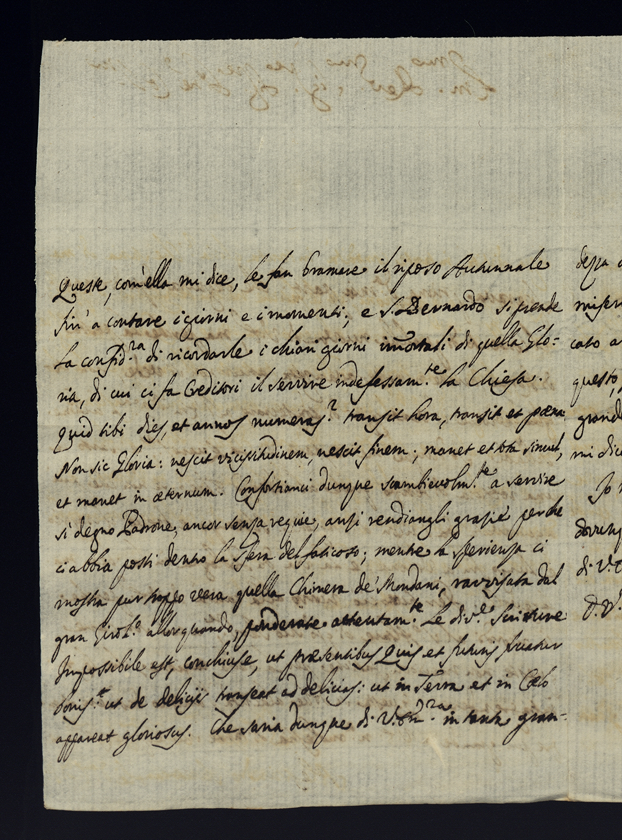 Queste, com'ella mi dice, le fan bramare il riposo Autunnale
fin' a contare i giorni e i momenti; e S. Bernardo si prende
la confid.za di ricordarle i chiari giorni immortali di quella Glo=
ria, di cui ci fa Creditori il servire indefessam.te la Chiesa.
Quid tibi dies, et annos numeras? transit hora, transit et pœna.
Non sic Gloria: nescit vicissitudinem, nescit finem; manet et tota simul,
et manet in æternum. Confortianci dunque scambievolm.te a servire
sì degno Padrone, ancor senza requie, anzi rendiangli grazie perche
ci abbia posti dentro la Sfera del faticoso; mentre la sperienza ci
mostra pur troppo vera quella Chimera de' Mondani, ravvisata dal
gran Girol.o allorquando, ponderate attentam.te Le div.e Scritture
Impossibile est, conchiuse, ut præsentibus Quis et futuris fruatur
bonis: ut de delicijs transeat ad delicias: ut in Terra et in Cœlo
appareat gloriosus. Che saria dunque di V. Em.za in tanta gran=
dezza
miser
cato a
questo,
grand
mi dice
Io
dovunq
di V.